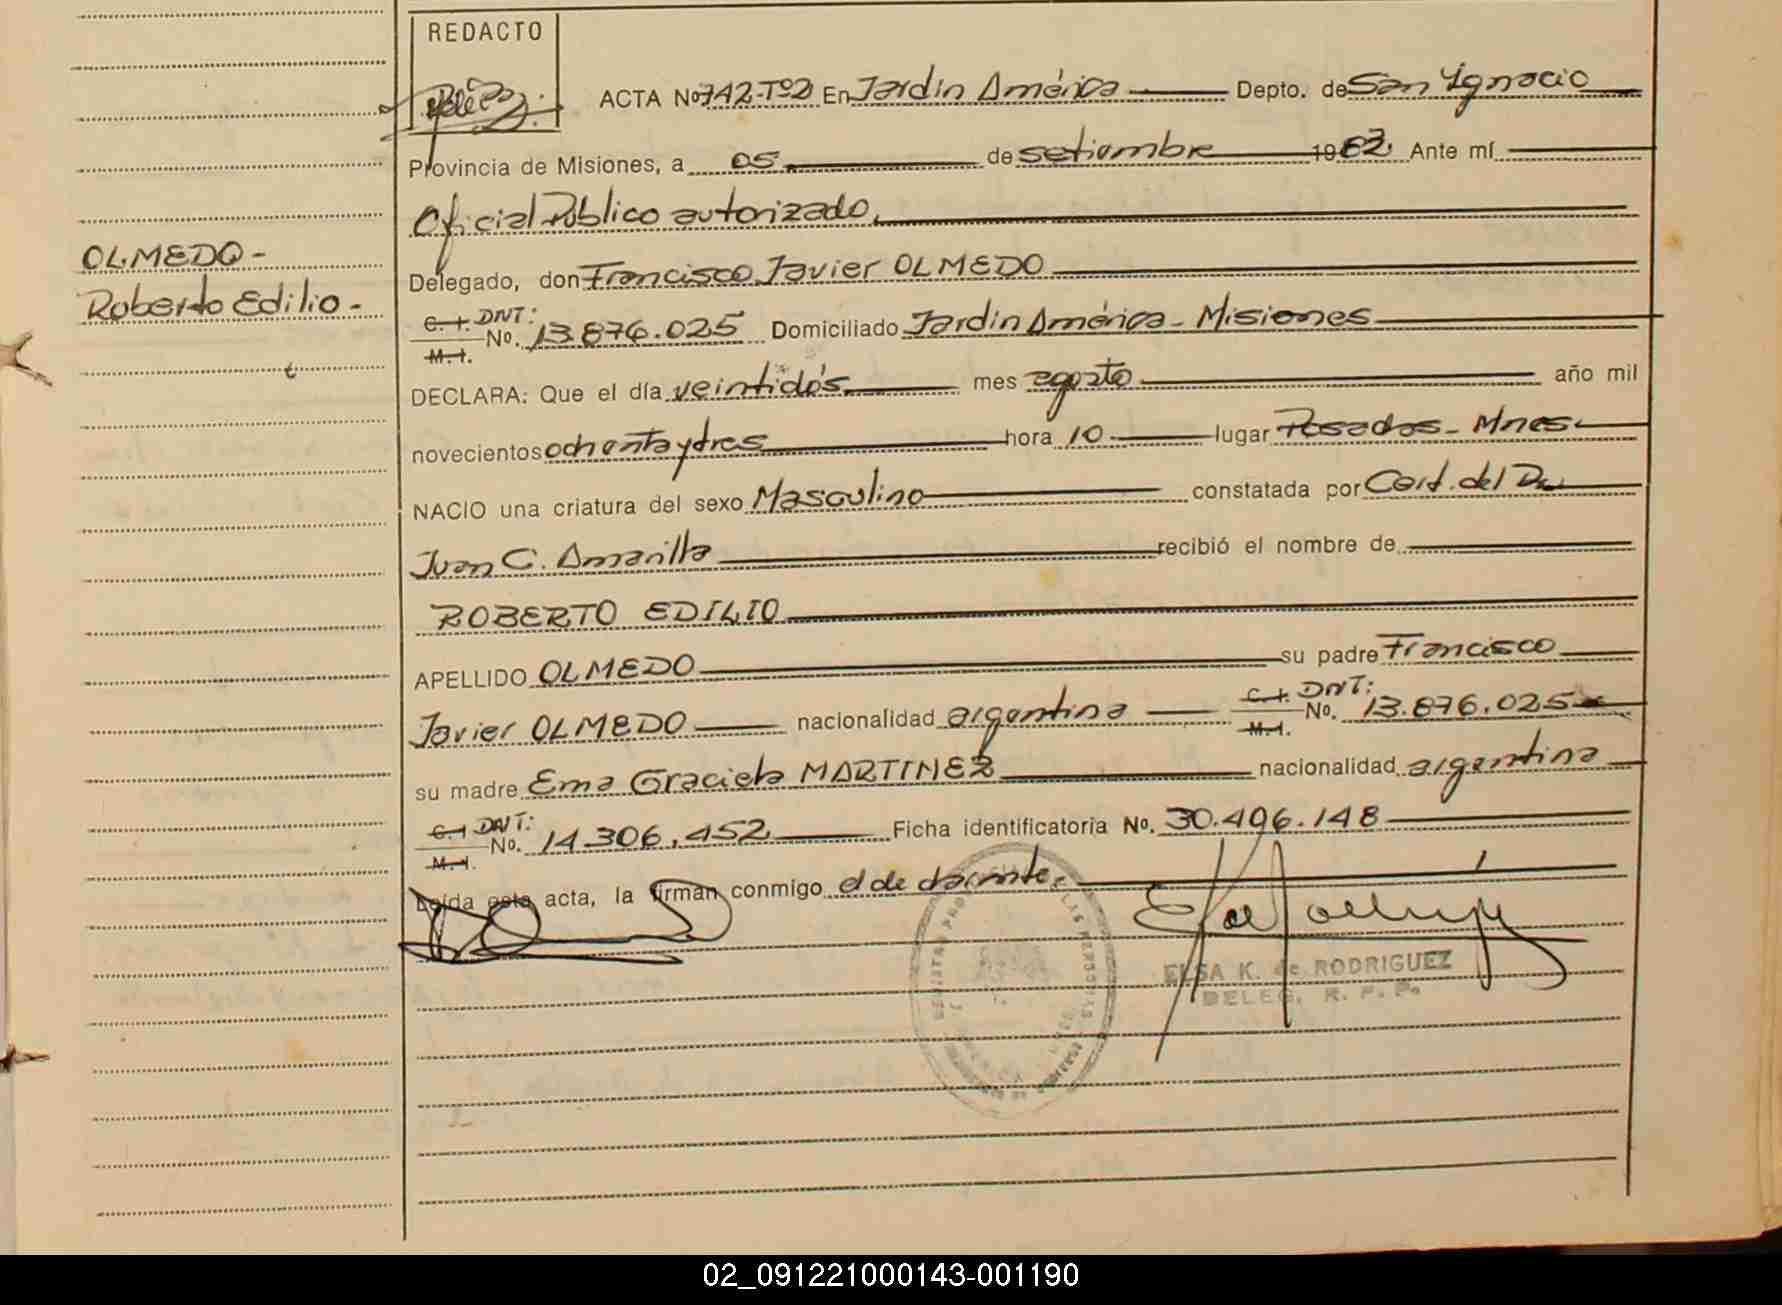 REDACTO
ACTA Nº 742-Tº2 En Jardín América Depto. de San Ignacio
Provincia de Misiones, a 05 de setiembre 1983 Ante mí
Oficial Público autorizado,
OLMEDO-
Roberto Edilio-
Delegado, don Francisco Javier OLMEDO
C. I. DNI:
M. I. No. 13.876.025 Domiciliado Jardín América - Misiones
DECLARA: Que el día veintidós mes agosto año mil
novecientos ochenta y tres hora 10 lugar Posadas - Mnes.
NACIO una criatura del sexo Masculino constatada por Cert. del Dr.
Juan C. Amarilla recibió el nombre de
ROBERTO EDILIO
APELLIDO OLMEDO su padre Francisco
Javier OLMEDO nacionalidad argentina C. I. DNI:
M. I. No. 13.876.025
su madre Ema Graciela MARTINEZ nacionalidad argentina
C. I DNI:
M. I. No. 14.306.452 Ficha identificatoria No. 30.496.148
Leída esta acta, la firman conmigo el declarante,
ELSA K. de RODRIGUEZ
DELEG. R. P. P.
02_091221000143-001190